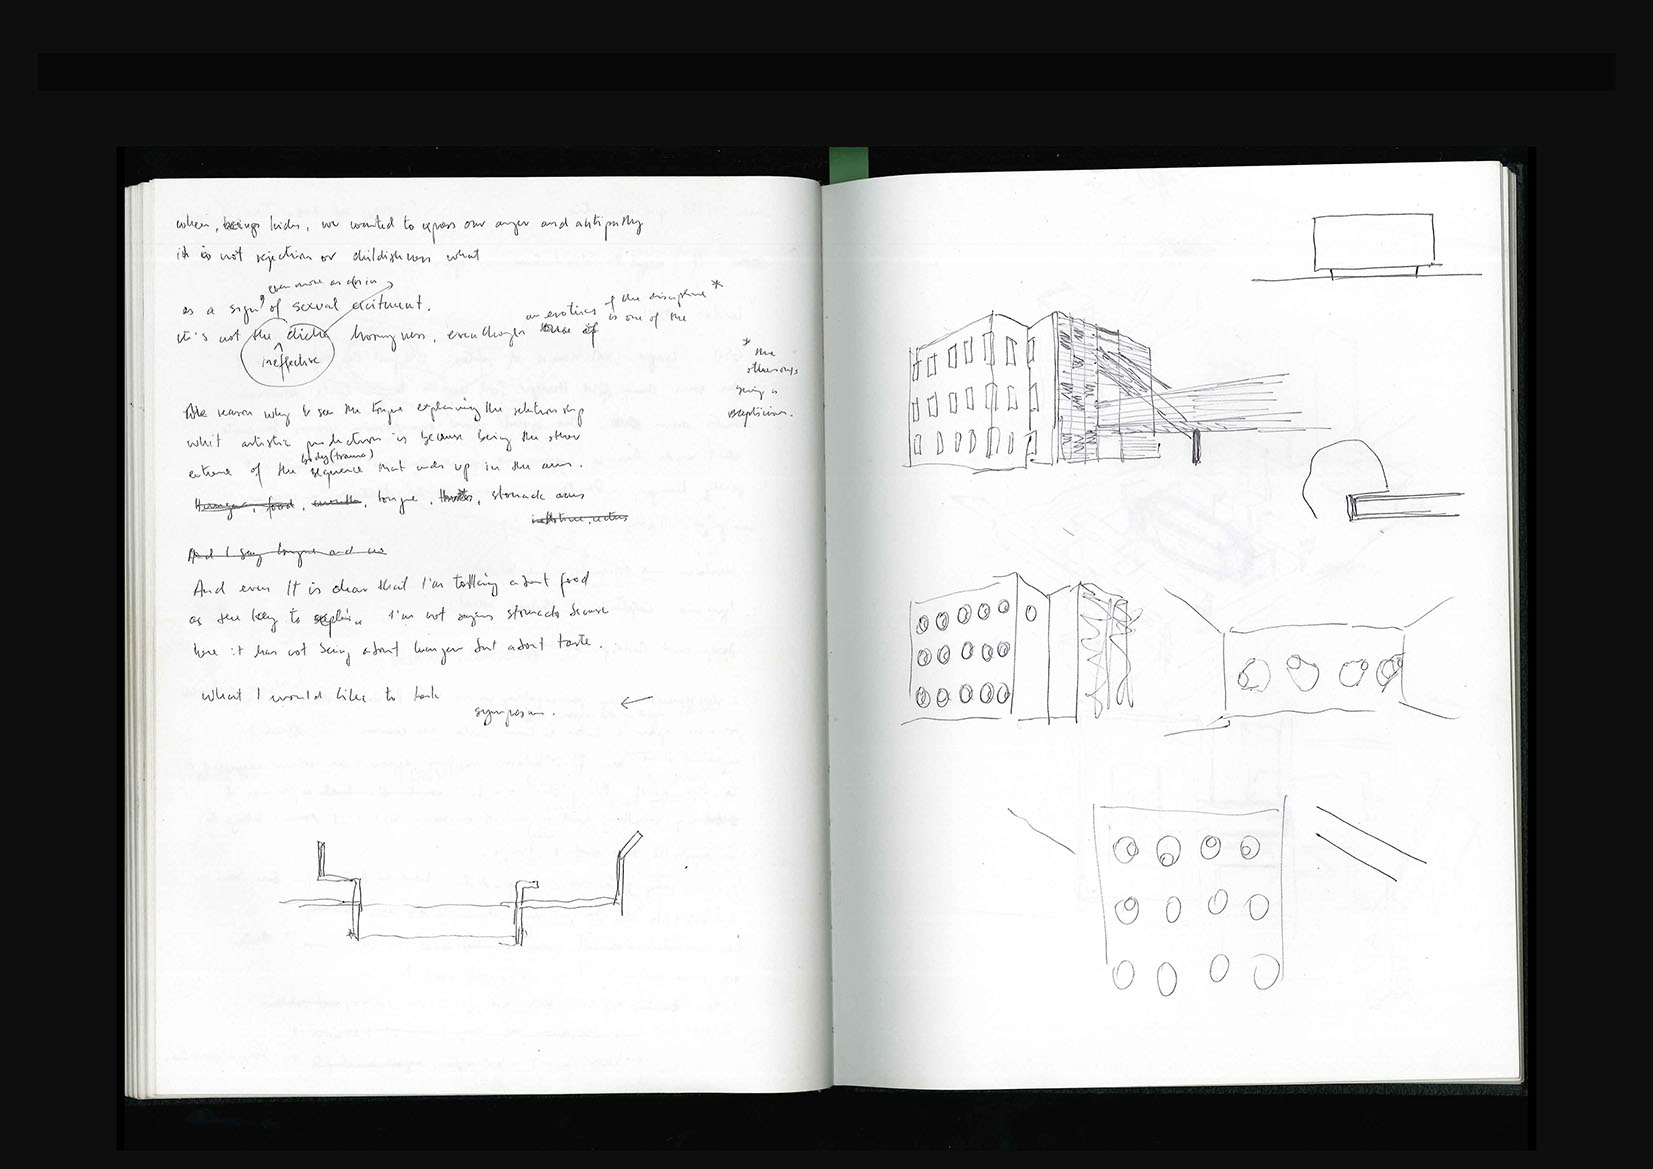 when, beings kids, we wanted to express our anger and antipathy
it is not rejection or childishness what
even more as
as a sign of sexual excitment.
it's not the cliché horniness, eventhough an erotics of the discipline * is one of the
ineffective
* the
other ones
being is
scepticism.
The reason why to see the tongue explaining the relationship
whit artistic production is because being the other
body (trauma)
extreme of the sequence that ends up in the anus.
food, tongue, stomach anus
And I say tongue and
And even It is clear that I'm talking about food
as the key to explain I'm not saying stomach because
here it has not being about hunger but about taste.
What I would like to
symposium.